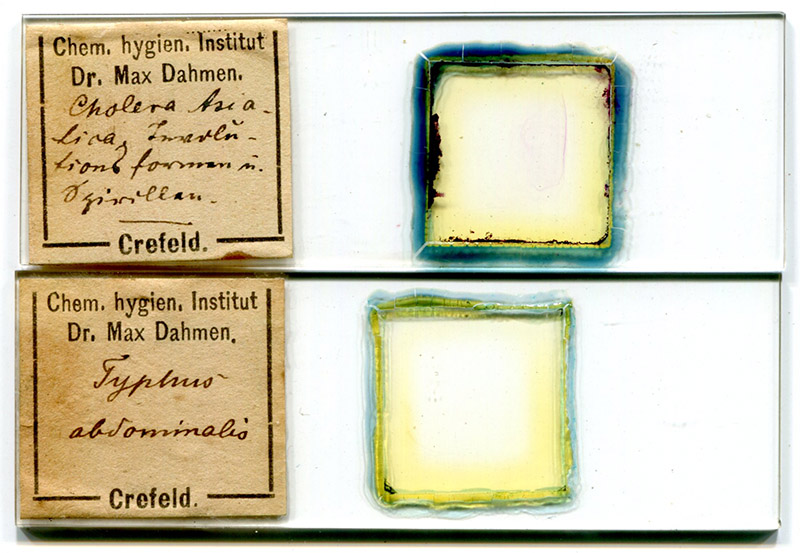 Chem. hygien. Institut
Dr. Max Dahmen.
Cholera Asia-
tica, Involu-
tions formen u.
Spirillen.
Crefeld.
Chem. hygien. Institut
Dr. Max Dahmen.
Typhus
abdominalis
Crefeld.